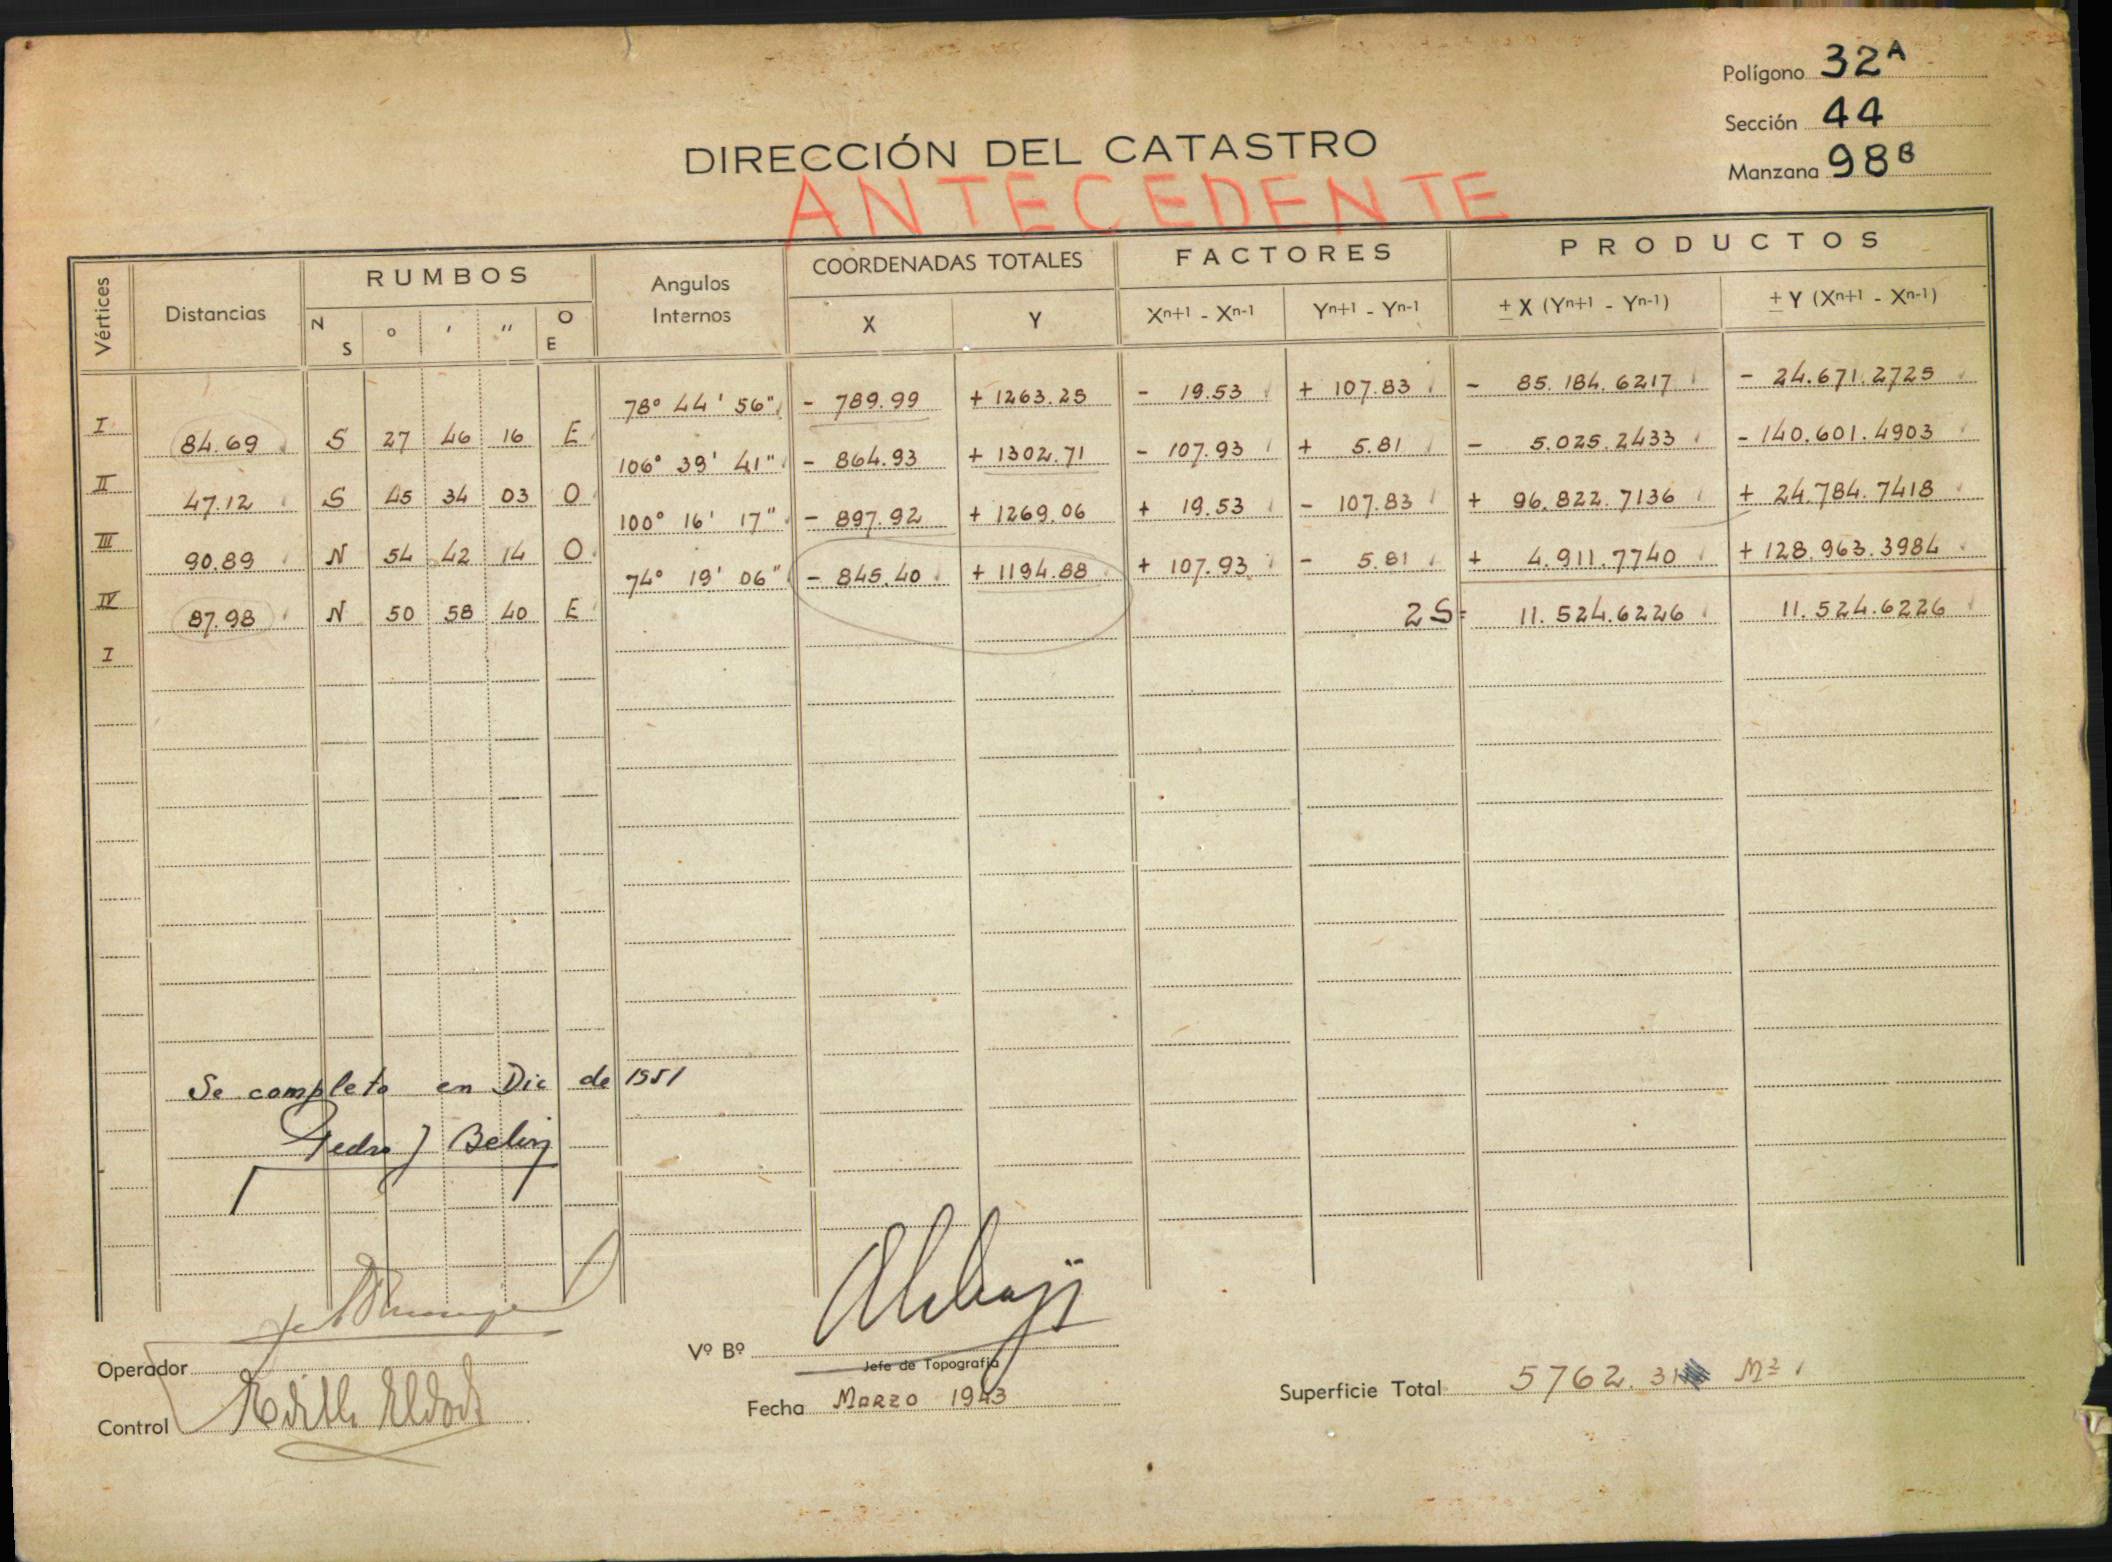 Polígono 32A
Sección 44
Manzana 98B
DIRECCIÓN DEL CATASTRO
ANTECEDENTE
Vértices Distancias RUMBOS Angulos Internos COORDENADAS TOTALES FACTORES PRODUCTOS
N S ° ' " O E X Y Xn+1 - Xn-1 Yn+1 - Yn-1 ± X (Yn+1 - Yn-1) ± Y (Xn+1 - Xn-1)
78° 44' 56" - 789.99 + 1263.25 - 19.53 + 107.83 - 85.184.6217 - 24.671.2725
I 84.69 S 27 46 16 E
106° 39' 41" - 864.93 + 1302.71 - 107.93 + 5.81 - 5.025.2433 - 140.601.4903
II 47.12 S 45 34 03 O
100° 16' 17" - 897.92 + 1269.06 + 19.53 - 107.83 + 96.822.7136 + 24.784.7418
III 90.89 N 54 42 14 O
74° 19' 06" - 845.40 + 1194.88 + 107.93 - 5.81 + 4.911.7740 + 128.963.3984
IV 87.98 N 50 58 40 E
2S= 11.524.6226 11.524.6226
I
Se completo en Dic de 1951
Pedro J
Operador
Vº Bº
Jefe de Topografía
Control
Fecha Marzo 1943
Superficie Total 5762.31 M2